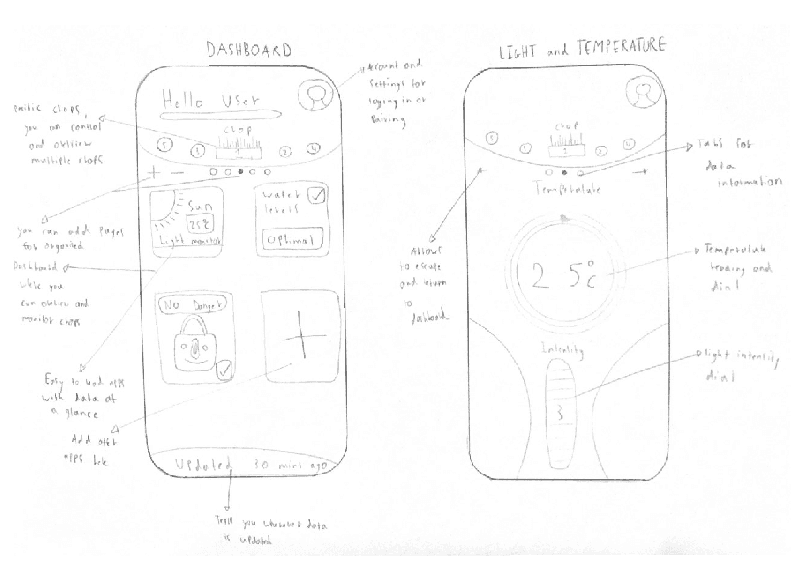 DASHBOARD
Hello User
crop
+ -
Sun
25%
Light monitor
Water
levels
Optimal
No Danger
+
Updated 30 mins ago
Account and
settings for
logging in or
crops,
you can control
and
multiple crops
you can add pages
for organised
Dashboard
where you
can and
monitor crops
Easy to read apps
with data at
a glance
Add other
apps
Tells you data
is updated
LIGHT and TEMPERATURE
crop
Temperature
25°c
Intensity
3
Tabs for
data
information
Allows
to escape
and return
to
dashboard
Temperature
reading and
dial
light intensity
dial